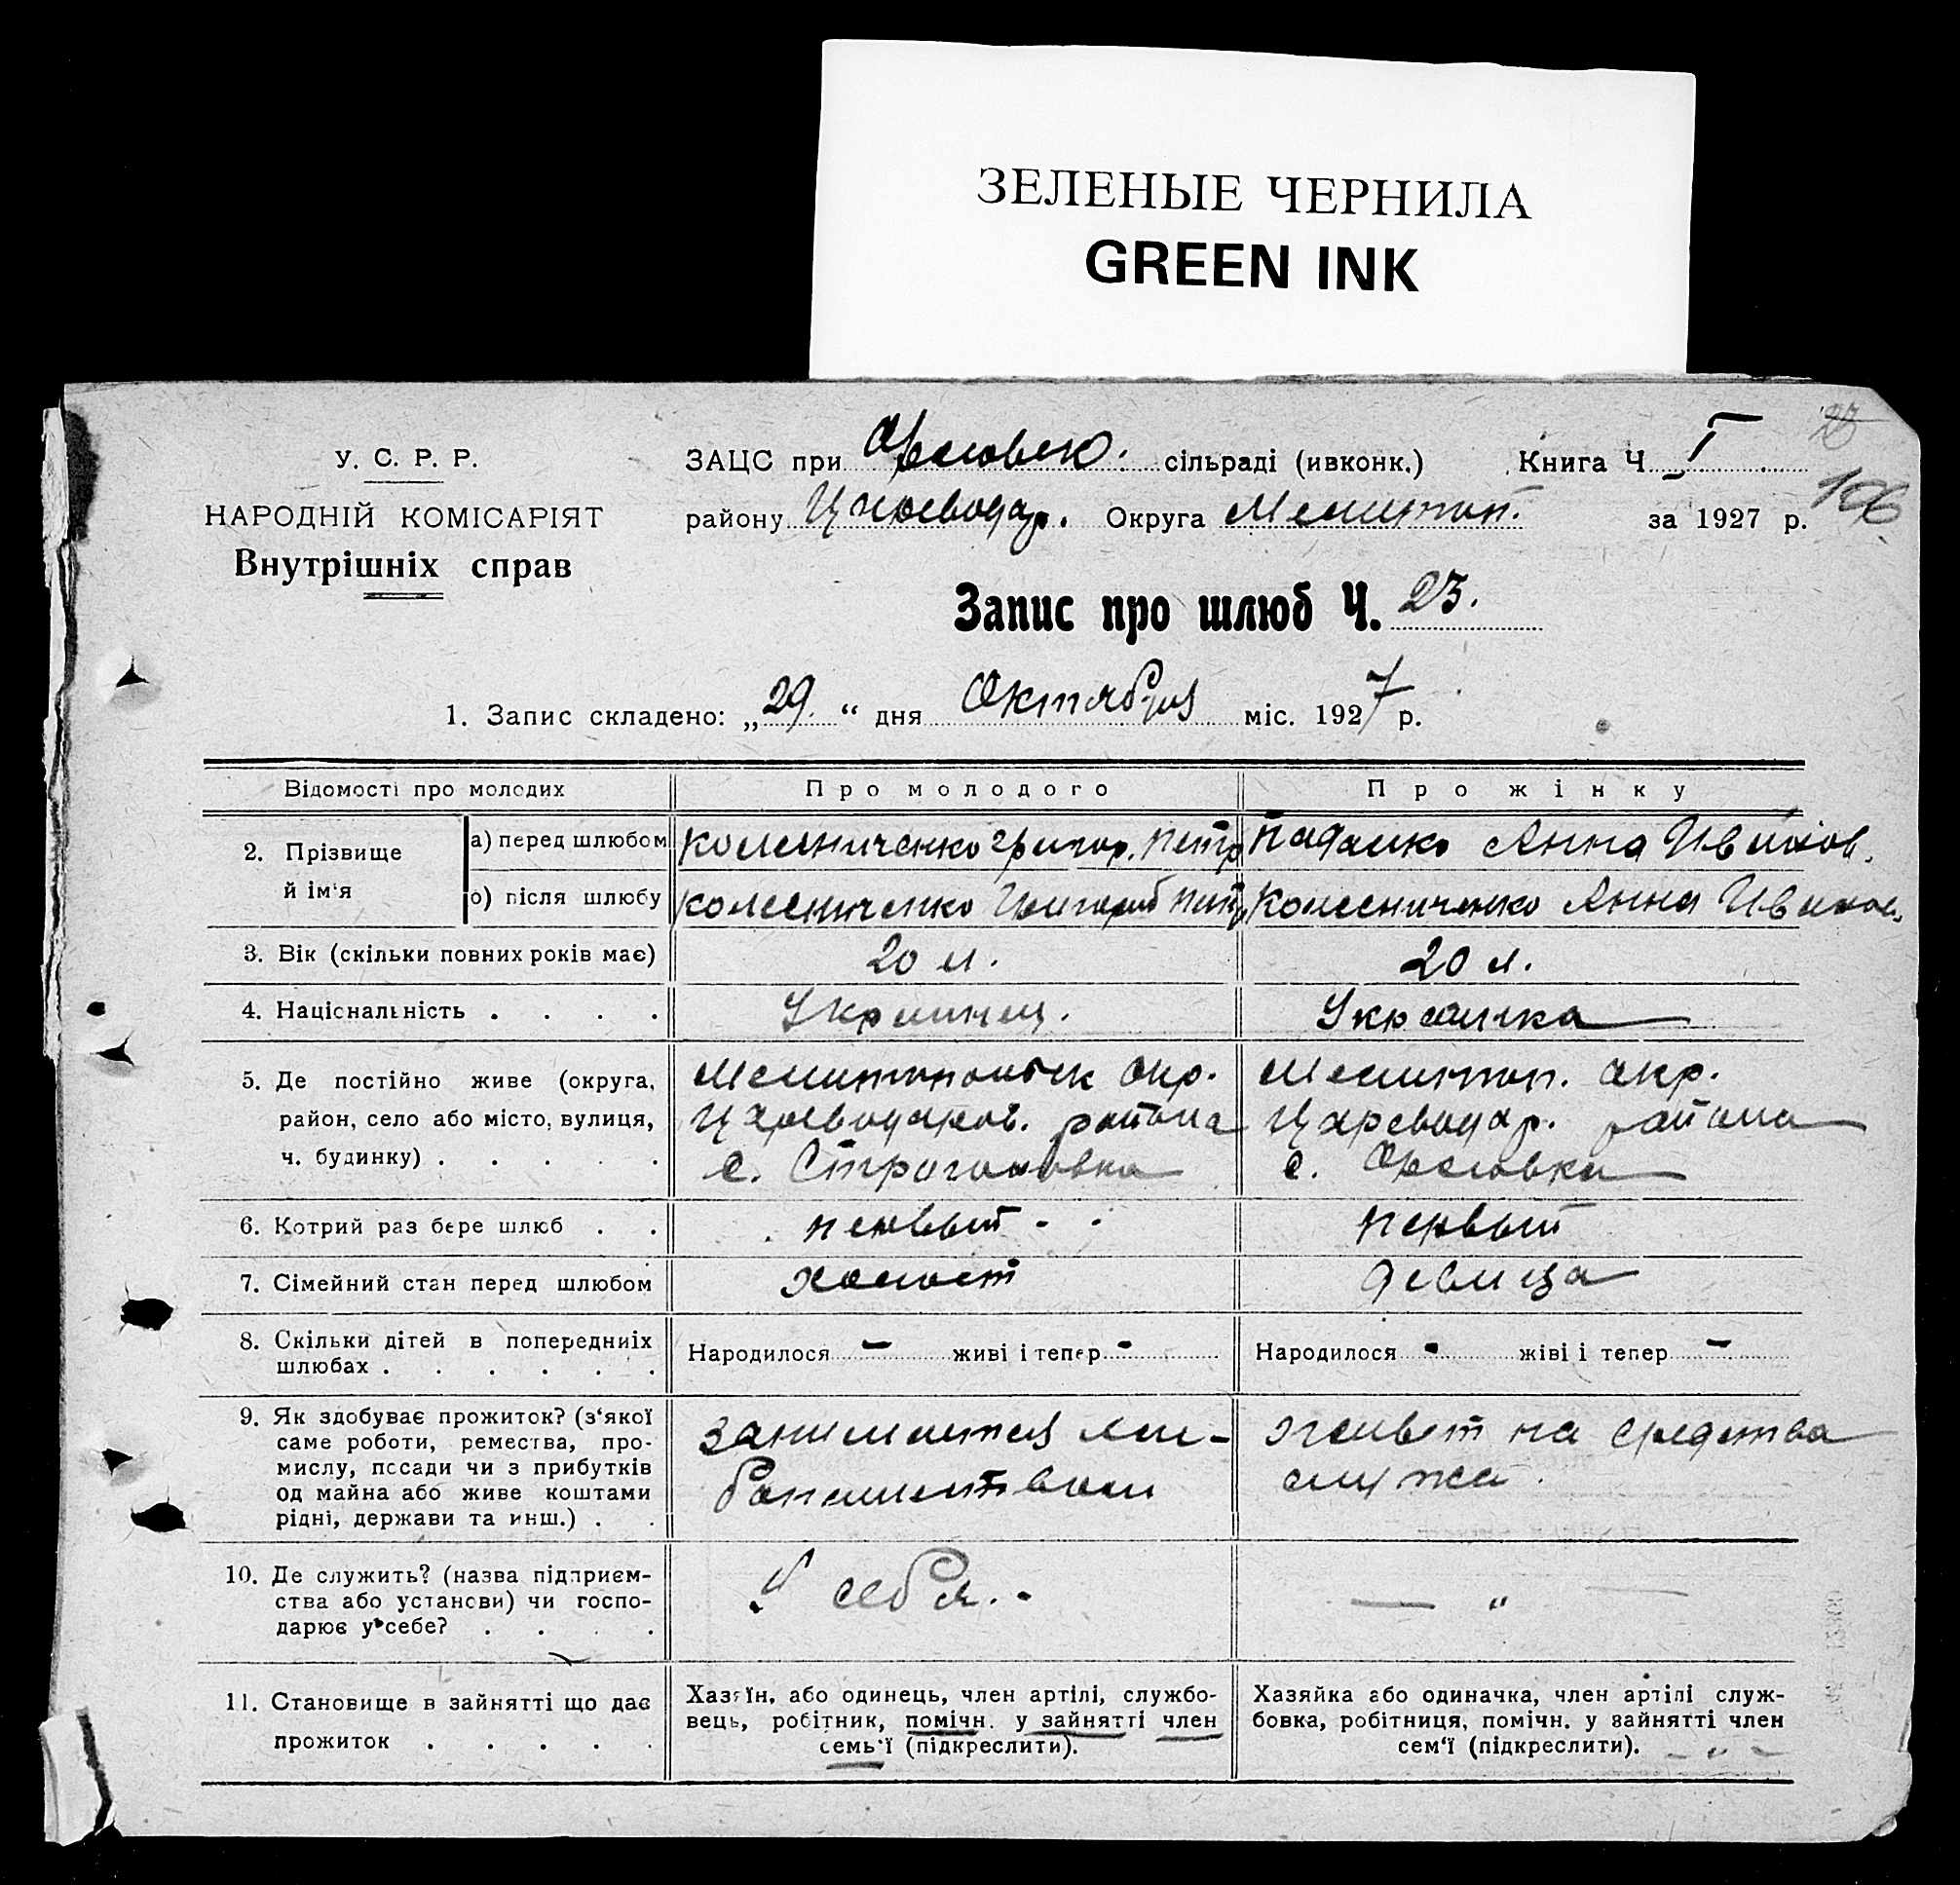 ЗЕЛЕНЫЕ ЧЕРНИЛА
GREEN INK
У. С. Р. Р.
НАРОДНІЙ КОМІСАРІЯТ
Внутрішніх справ
ЗАЦС при Орловск. сільраді (ивконк.) Книга Ч I
району Цареводар. Округа Мелитоп. за 1927 р.
106
Запис про шлюб Ч. 23.
1. Запис складено: „29.“ дня Октября міс. 1927 р.
Відомості про молодих Про молодого Про жінку
2. Прізвище й ім'я
а) перед шлюбом Колесниченко Григор. Петр Падалко Анна Иванов.
о) після шлюбу Колесниченко Григорий Петр Колесниченко Анна Иванов.
3. Вік (скільки повних років має) 20 л. 20 л.
4. Національність . . . . Украинец. Украинка
5. Де постійно живе (округа, Мелитопольск окр. Мелитоп. окр.
район, село або місто, вулиця, Цареводаров. района Цареводар. района
ч. будинку) . . . . . с. Строгановка с. Орловка
6. Котрий раз бере шлюб . . первый первый
7. Сімейний стан перед шлюбом холост девица
8. Скільки дітей в попередниіх Народилося – живі і тепер - Народилося - жіві і тепер –
шлюбах . . . . . .
9. Як здобуває прожиток? (з'якої
саме роботи, ремества, про-
мислу, пссади чи з прибутків
од майна або живе коштами
рідні, держави та инш.) . .
занимается хле-
бопашеством
живет на средства
мужа.
10. Де служить? (назва підприєм-
ства або установи) чи госпо-
дарює у себе? . . . .
У себя.
— „ —
11. Становище в зайнятті що дає
прожиток . . . . .
Хазяїн, або одинець, член артілі, службо-
вець, робітник, помічн. у зайнятті член
семь'ї (підкреслити).
Хазяйка або одиначка, член артілі служ-
бовка, робітниця, помічн. у зайнятті член
сем'ї (підкреслити). - „ -